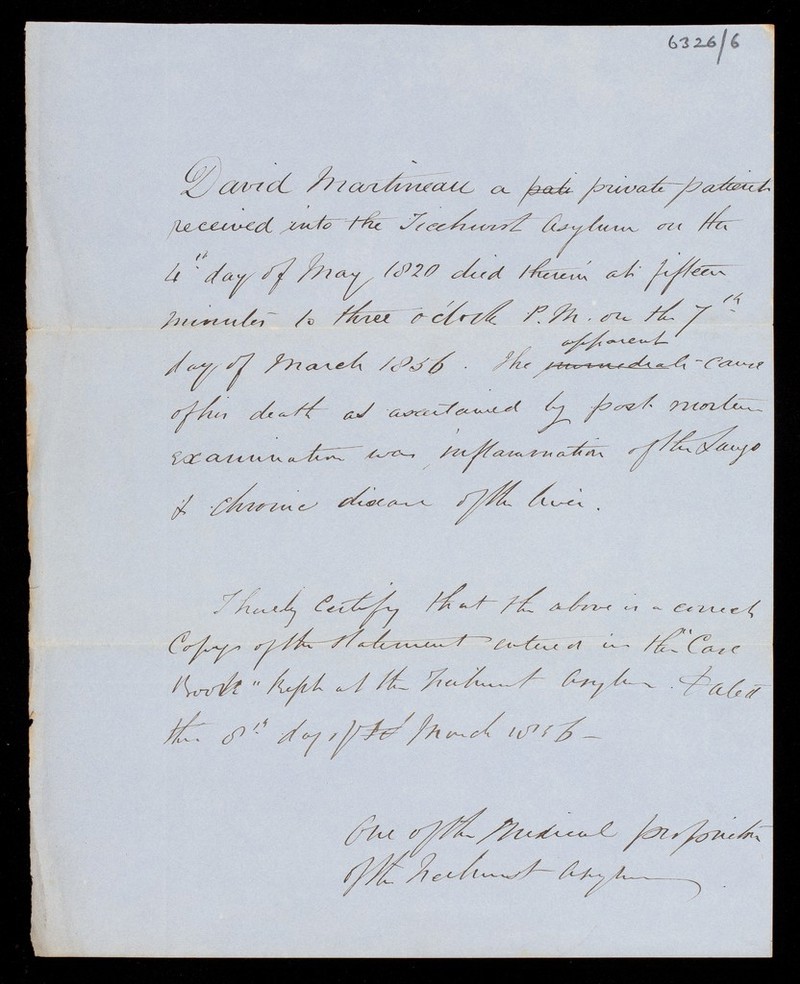 6326/6
David Martineau a pati private patient
received into the Ticehurst Asylum on the
4th day of May 1820 died therein at fifteen
minutes to three o'clock P.M. on the 7th
apparent
day of March 1856. The immediate cause
of his death as ascertained by post mortem
examination was inflammation of the Lungs
& chronic disease of the liver.
I hereby Certify that the above is a correct
Copy of the Statement entered in the "Case
Book" kept at the Ticehurst Asylum. Dated
this 8th day of March 1856 -
One of the Medical proprietors
of the Ticehurst Asylum